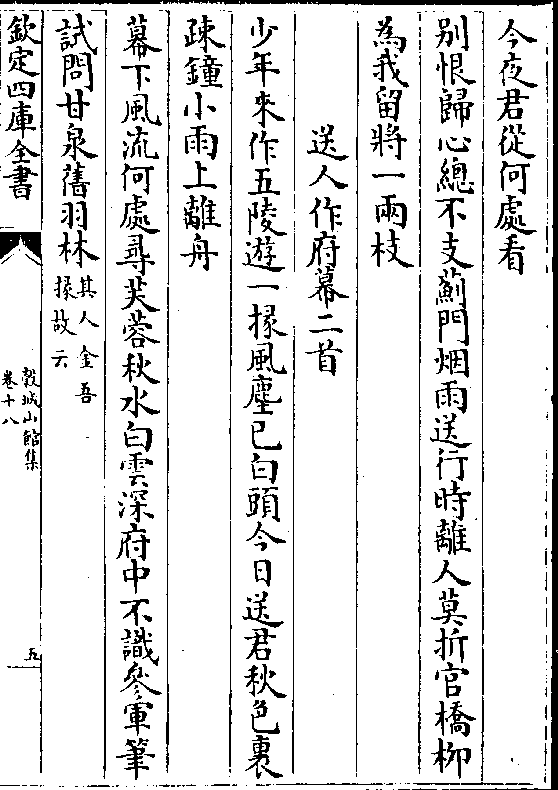 今夜君從何處看
別恨歸心總不支薊門烟雨送行時離人莫折官橋柳
為我留將一兩枝
送人作府幕二首
少年來作五陵遊一掾風塵已白頭今日送君秋色裏
疎鐘小雨上離舟
幕下風流何處尋芙蓉秋水白雲深府中不識參軍筆
試問甘泉舊羽林其人金吾
掾故云
欽定四庫全書
穀城山館集
卷十八
五